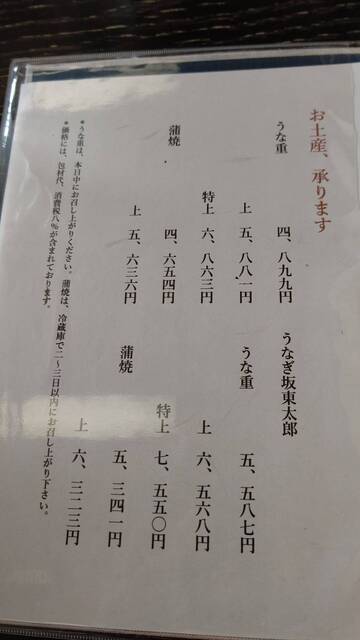 お土産、承ります
うな重
四、八九九円
上 五、八八一円
特上 六、八六三円
蒲焼
四、六五四円
上 五、六三六円
うなぎ坂東太郎
うな重
五、五八七円
上 六、五六八円
特上 七、五五〇円
蒲焼
五、三四一円
上 六、三二三円
*うな重は、本日中にお召し上がりください。蒲焼は、冷蔵庫で二～三日以内にお召し上がり下さい。
*価格には、包材代、消費税八%が含まれております。